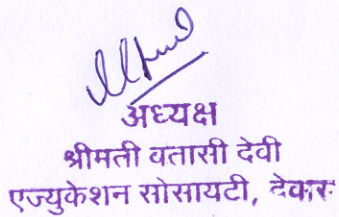 अध्यक्ष
श्रीमती वतासी देवी
एज्युकेशन सोसायटी, देवकर